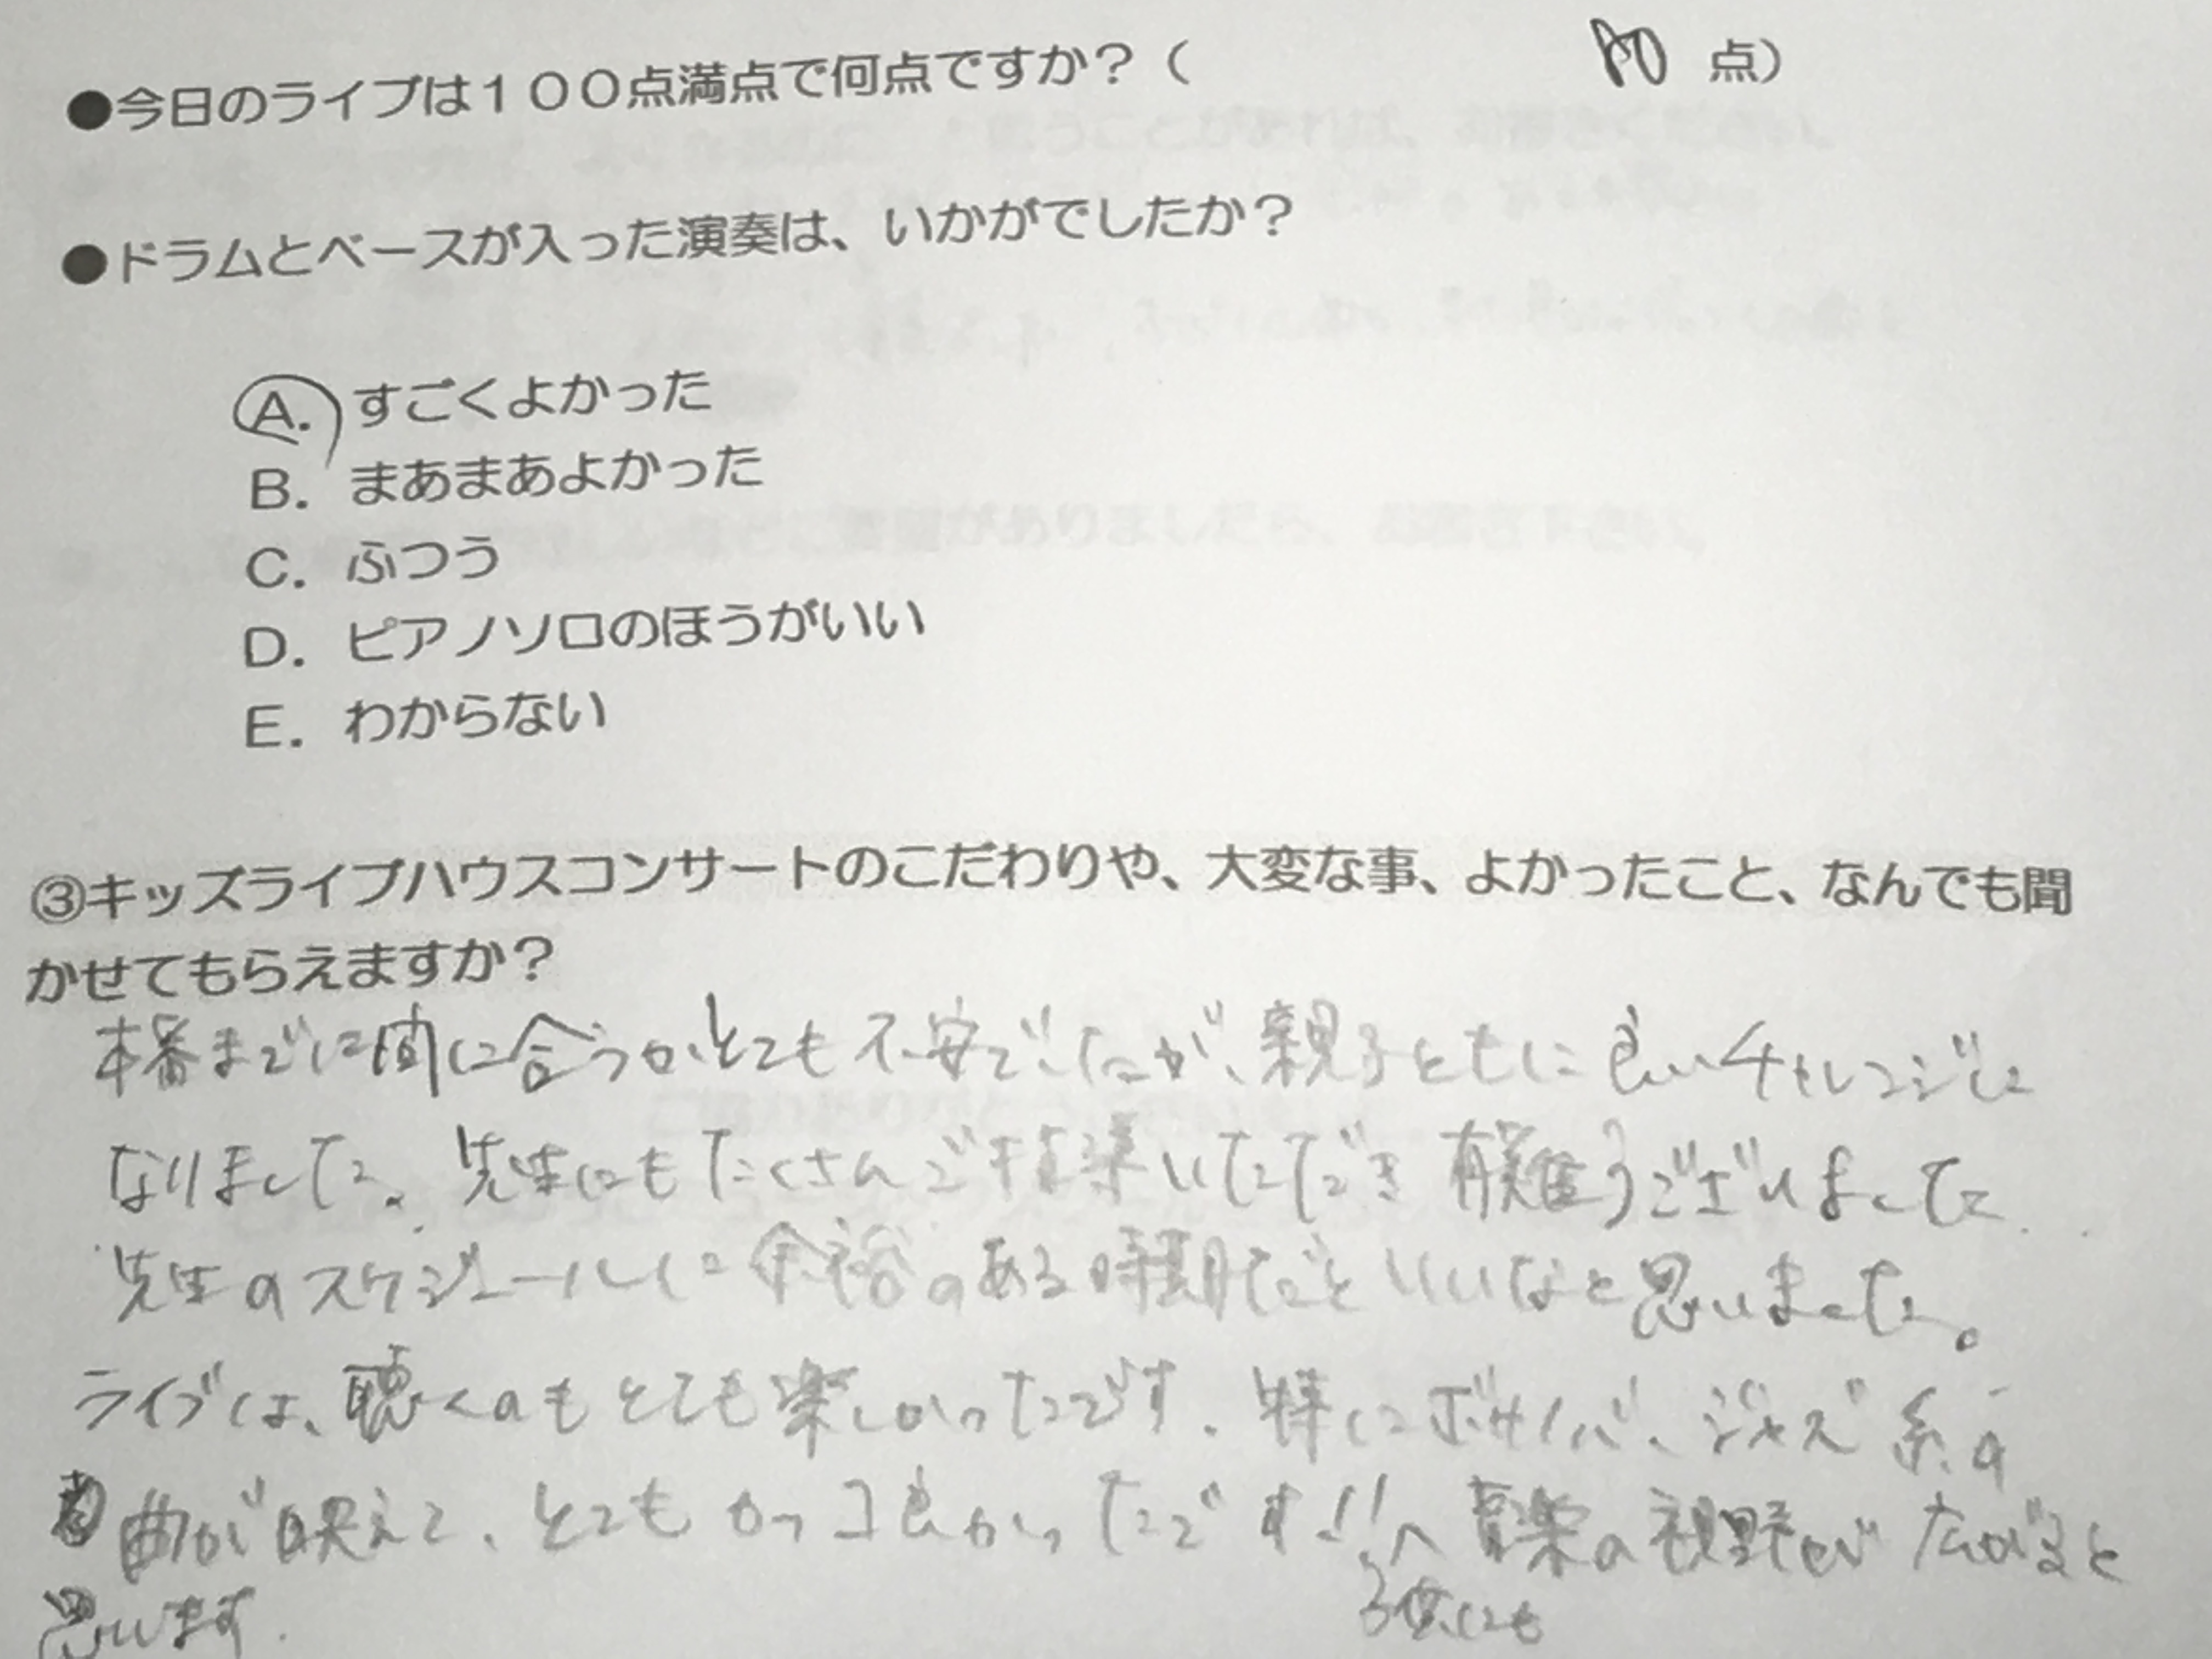 ●今日のライブは１００点満点で何点ですか？（ 点）
●ドラムとベースが入った演奏は、いかがでしたか？
A. すごくよかった
B. まあまあよかった
C. ふつう
D. ピアノソロのほうがいい
E. わからない
③キッズライブハウスコンサートのこだわりや、大変な事、よかったこと、なんでも聞
かせてもらえますか？
本番までに間に合うかとても不安でしたが、親子ともに良いチャレンジに
なりました。先生にもたくさんご指導いただき有難うございました。
先生のスケジュールに余裕のある時期だといいなと思いました。
ライブは、聴くのもとても楽しかったです。特にボサノバ、ジャズ系の
曲が映えて、とてもカッコ良かったです!! 音楽の視野が広がると
子供にも
思います.